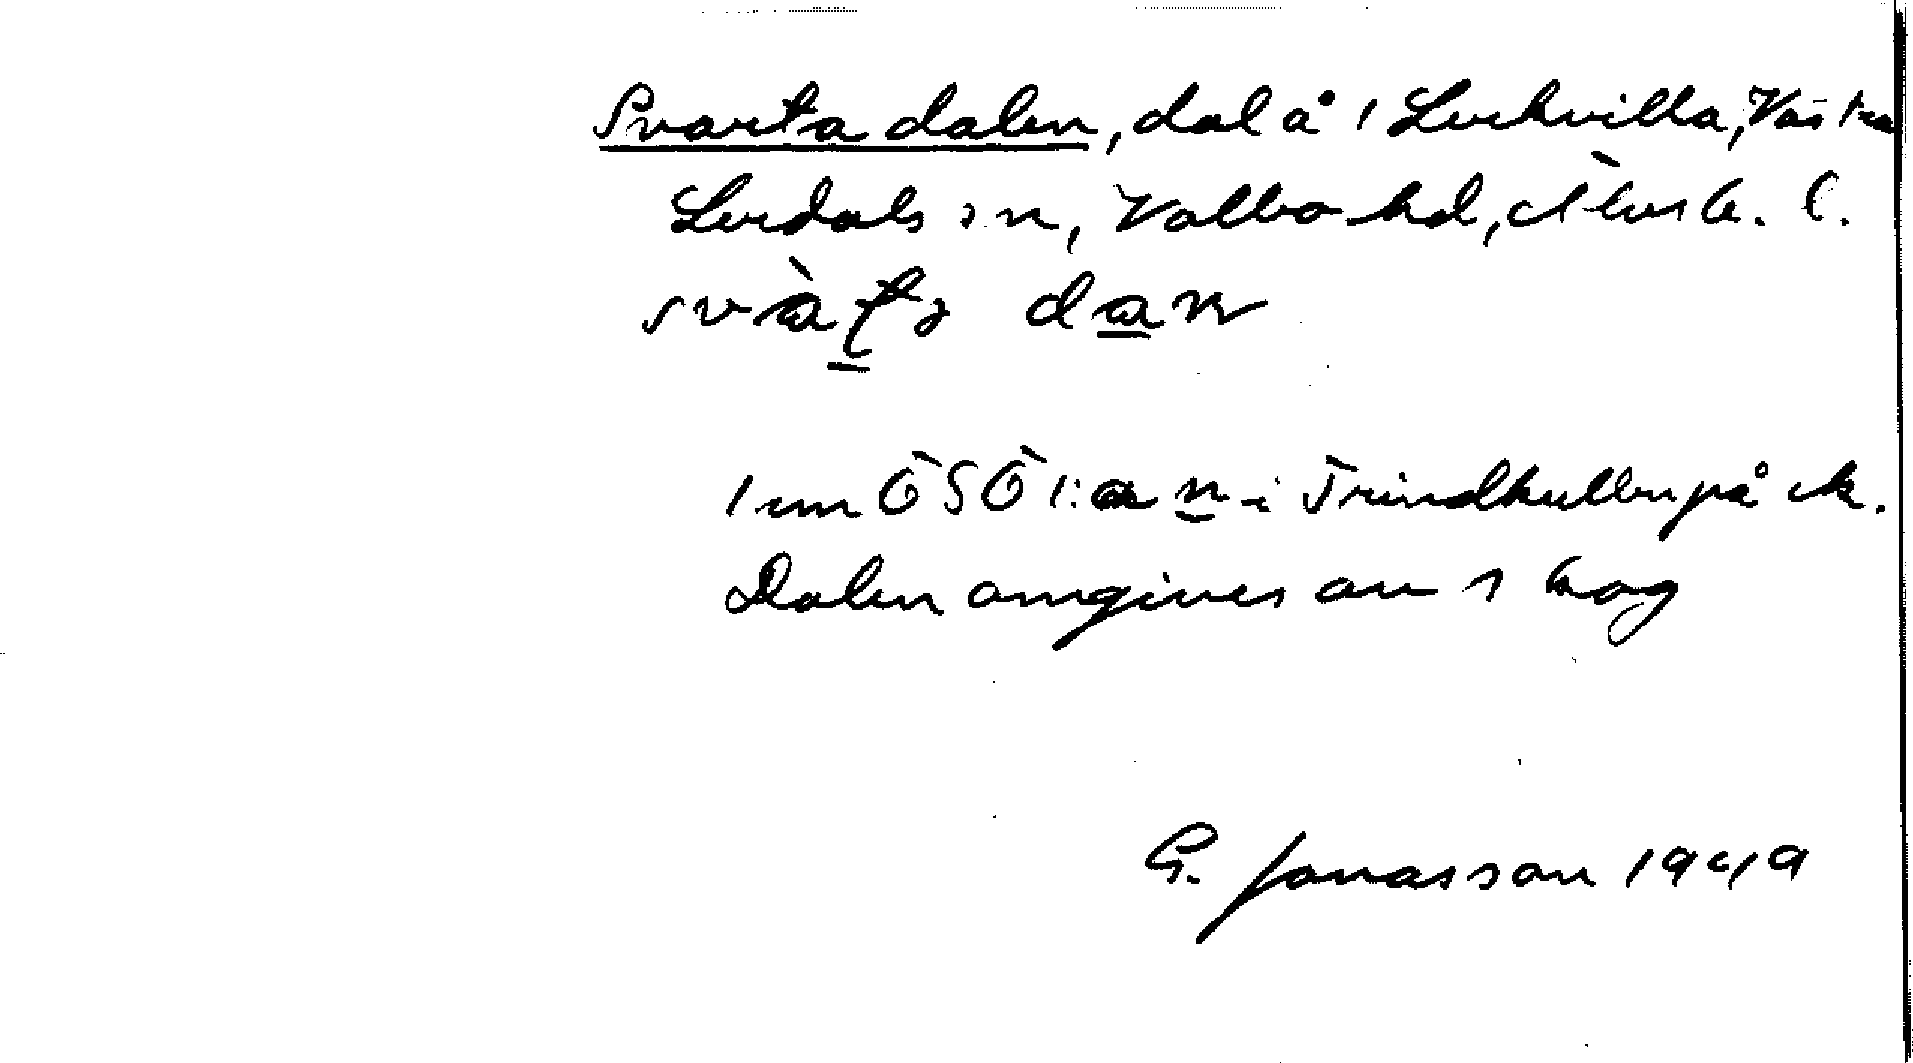 Svarta dalen, dal å 1 Lerkvilla, Västra
Lerdals sn, Valbo hd, Älvsb. l.
dan
1 em ÖSÖ 1: a n i Trindkullen på ek.
Dalen omgives av skog
G. Jonasson 1949